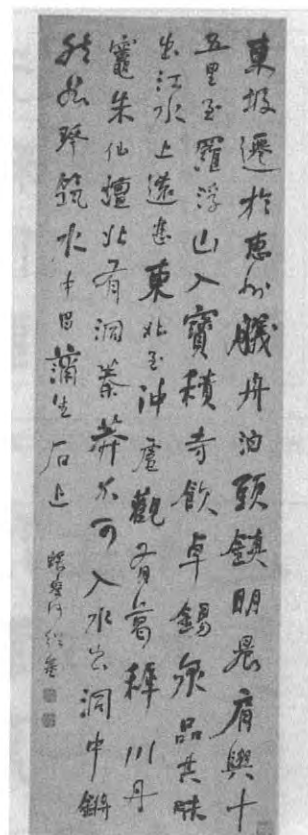 東坡遷於惠州艤舟泊頭鎮明晨肩輿十
五里至羅浮山入寶積寺飲卓錫泉品其味
出江水上遠甚東北至沖虛觀有葛稚川丹
竈朱仙壇北有洞蓁莽不可入水出洞中鏘
然如琴筑水中昌蒲生石上
蝯叟何紹基